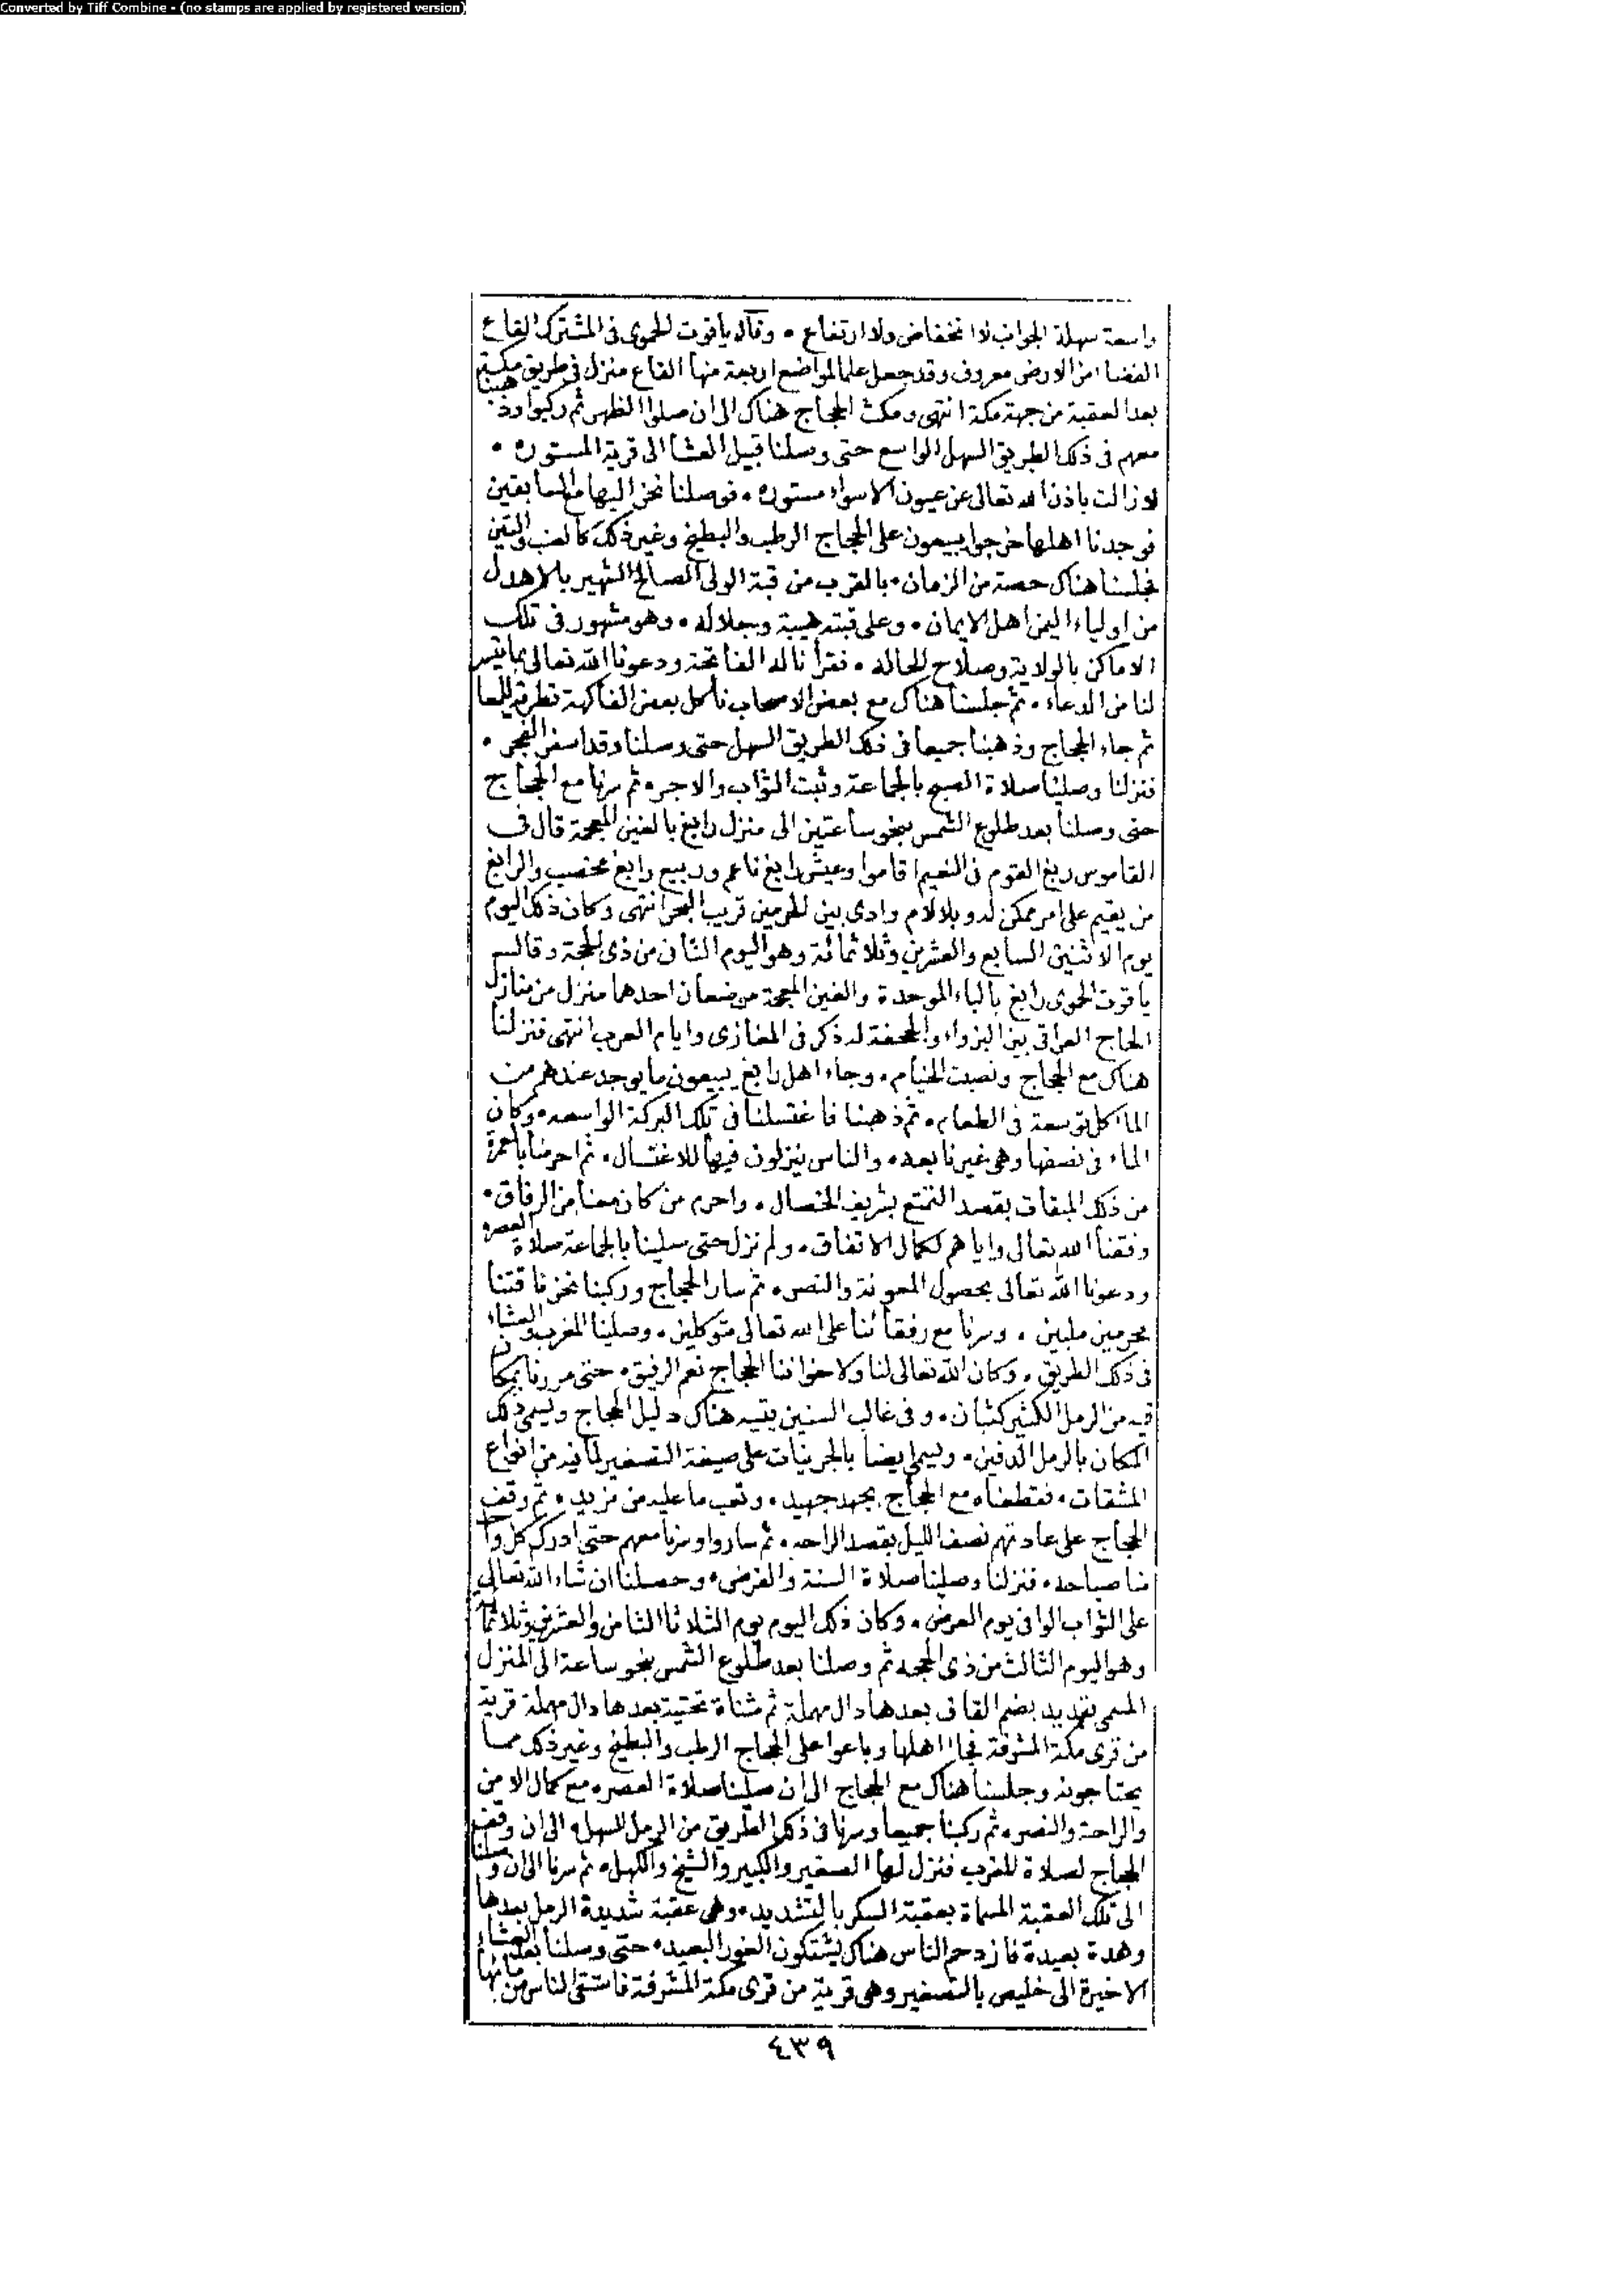 Converted by Tiff Combine - (no stamps are applied by registered version)
واسعة سهلة الجوانب لا انخفاض ولا ارتفاع . وقال ياقوت الحموى فى المشترك القاع
الفضا من الارض معروف وقد جعل علما لمواضع اربعة منها القاع منزل فى طريق مكة
بعد العقبة من جهة مكة انتهى ومكث الحجاج هناك الى ان صلوا الظهر ثم ركبوا وذهبنا
معهم فى ذلك الطريق السهل الواسع حتى وصلنا قبيل العشا الى قرية المستوره .
لا زالت باذن الله تعالى عن عيون الاسواء مستوره . فوصلنا نحن اليها مع السابقين
فوجدنا اهلها خرجوا يبيعون على الحجاج الرطب والبطيخ وغير ذلك كالعنب والتين
فجلسنا هناك حصة من الزمان . بالقرب من قبة الولى الصالح الشهير بالاهدل
من اولياء اليمن اهل الايمان . وعلى قبته هيبة وجلاله . وهو مشهور فى تلك
الاماكن بالولاية وصلاح الحاله . فقرأنا له الفاتحة ودعونا الله تعالى بما تيسر
لنا من الدعاء . ثم جلسنا هناك مع بعض الاصحاب نأكل بعض الفاكهة
ثم جاء الحجاج وذهبنا جميعا فى ذلك الطريق السهل حتى وصلنا وقد اسفر الفجر .
فنزلنا وصلينا صلاة الصبح بالجماعة وثبت الثواب والاجر . ثم سرنا مع الحجاج
حتى وصلنا بعد طلوع الشمس بنحو ساعتين الى منزل رابغ بالغين المعجمة قال فى
القاموس ربغ القوم فى النعيم اقاموا وعيش رابغ ناعم وربيع رابغ مخصب والرابغ
من يقيم على امر ممكن له وبلا لام وادى بين الحرمين قريب البحر انتهى وكان ذلك اليوم
يوم الاثنين السابع والعشرين وثلاثمائة وهو اليوم الثانى من ذى الحجة وقال
ياقوت الحموى رابغ بالباء الموحدة والغين المعجمة موضعان احدهما منزل من منازل
الحاج العراقى بين البزواء والجحفة له ذكر فى المغازى وايام العرب انتهى فنزلنا
هناك مع الحجاج ونصبت الخيام . وجاء اهل رابغ يبيعون ما يوجد عندهم من
المآكل توسعة فى الطعام . ثم ذهبنا فاغتسلنا فى تلك البركة الواسعه . وكان
الماء فى نصفها وهى غير نابعه . والناس ينزلون فيها للاغتسال . ثم احرمنا بالعمرة
من ذلك الميقات بقصد التمتع بشريف الخصال . واحرم من كان معنا من الرفاق .
وفقنا الله تعالى واياهم لكمال الاتفاق . ولم نزل حتى صلينا بالجماعة صلاة العصر
ودعونا الله تعالى بحصول المعونة والنصر . ثم سار الحجاج وركبنا نحن ناقتنا
محرمين ملبين . وسرنا مع رفقائنا على الله تعالى متوكلين . وصلينا المغرب والعشاء
فى ذلك الطريق . وكان الله تعالى لنا ولاخواننا الحجاج نعم الرفيق . حتى مررنا بمكان
فيه من الرمل الكثير كثبان . وفى غالب السنين يتيه هناك دليل الحجاج ويسمى ذلك
المكان بالرمل الدفين . ويسمى ايضا بالجرينات على صيغة التصغير لما فيه من انواع
المشقات . فقطعناه مع الحجاج بجهد جهيد . وتعب ما عليه من مزيد . ثم وقف
الحجاج على عادتهم نصف الليل بقصد الراحه . ثم ساروا وسرنا معهم حتى ادرك كل واحد
منا صباحه . فنزلنا وصلينا صلاة السنة والفرض . وحصلنا ان شاء الله تعالى
على الثواب الوافى يوم العرض . وكان ذلك اليوم يوم الثلاثا الثامن والعشرين وثلاثمائة
وهو اليوم الثالث من ذى الحجه ثم وصلنا بعد طلوع الشمس بنحو ساعة الى المنزل
المسمى بقديد بضم القاف بعدها دال مهملة ثم مثناة تحتية بعدها دال مهملة قرية
من قرى مكة المشرفة فجاء اهلها وباعوا على الحجاج الرطب والبطيخ وغير ذلك مما
يحتاجونه وجلسنا هناك مع الحجاج الى ان صلينا صلاة العصر . مع كمال الامن
والراحة والنصر . ثم ركبنا جميعا وسرنا فى ذلك الطريق من الرمل السهل الى ان وقف
الحجاج لصلاة المغرب فنزل لها الصغير والكبير والشيخ والكهل . ثم سرنا الى ان وصلنا
الى تلك العقبة المسماة بعقبة السكر بالتشديد . وهى عقبة شديدة الرمل بعدها
وهدة بعيدة فازدحم الناس هناك يشتكون الغور البعيد . حتى وصلنا بعد العشاء
الاخيرة الى خليص بالتصغير وهى قرية من قرى مكة المشرفة فاستقى الناس من مائها
٤٣٩